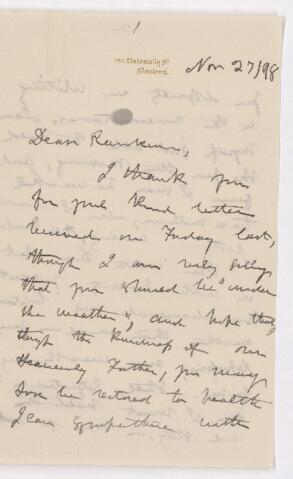 1
University St
Montreal
Nov 27/98
Dear Rankine,
I thank you
for your kind letter
received on Friday last,
though I am very sorry
that you should be "under
the weather", and hope that
through the kindness of our
Heavenly Father, you may
soon be restored to health
I can sympathise with